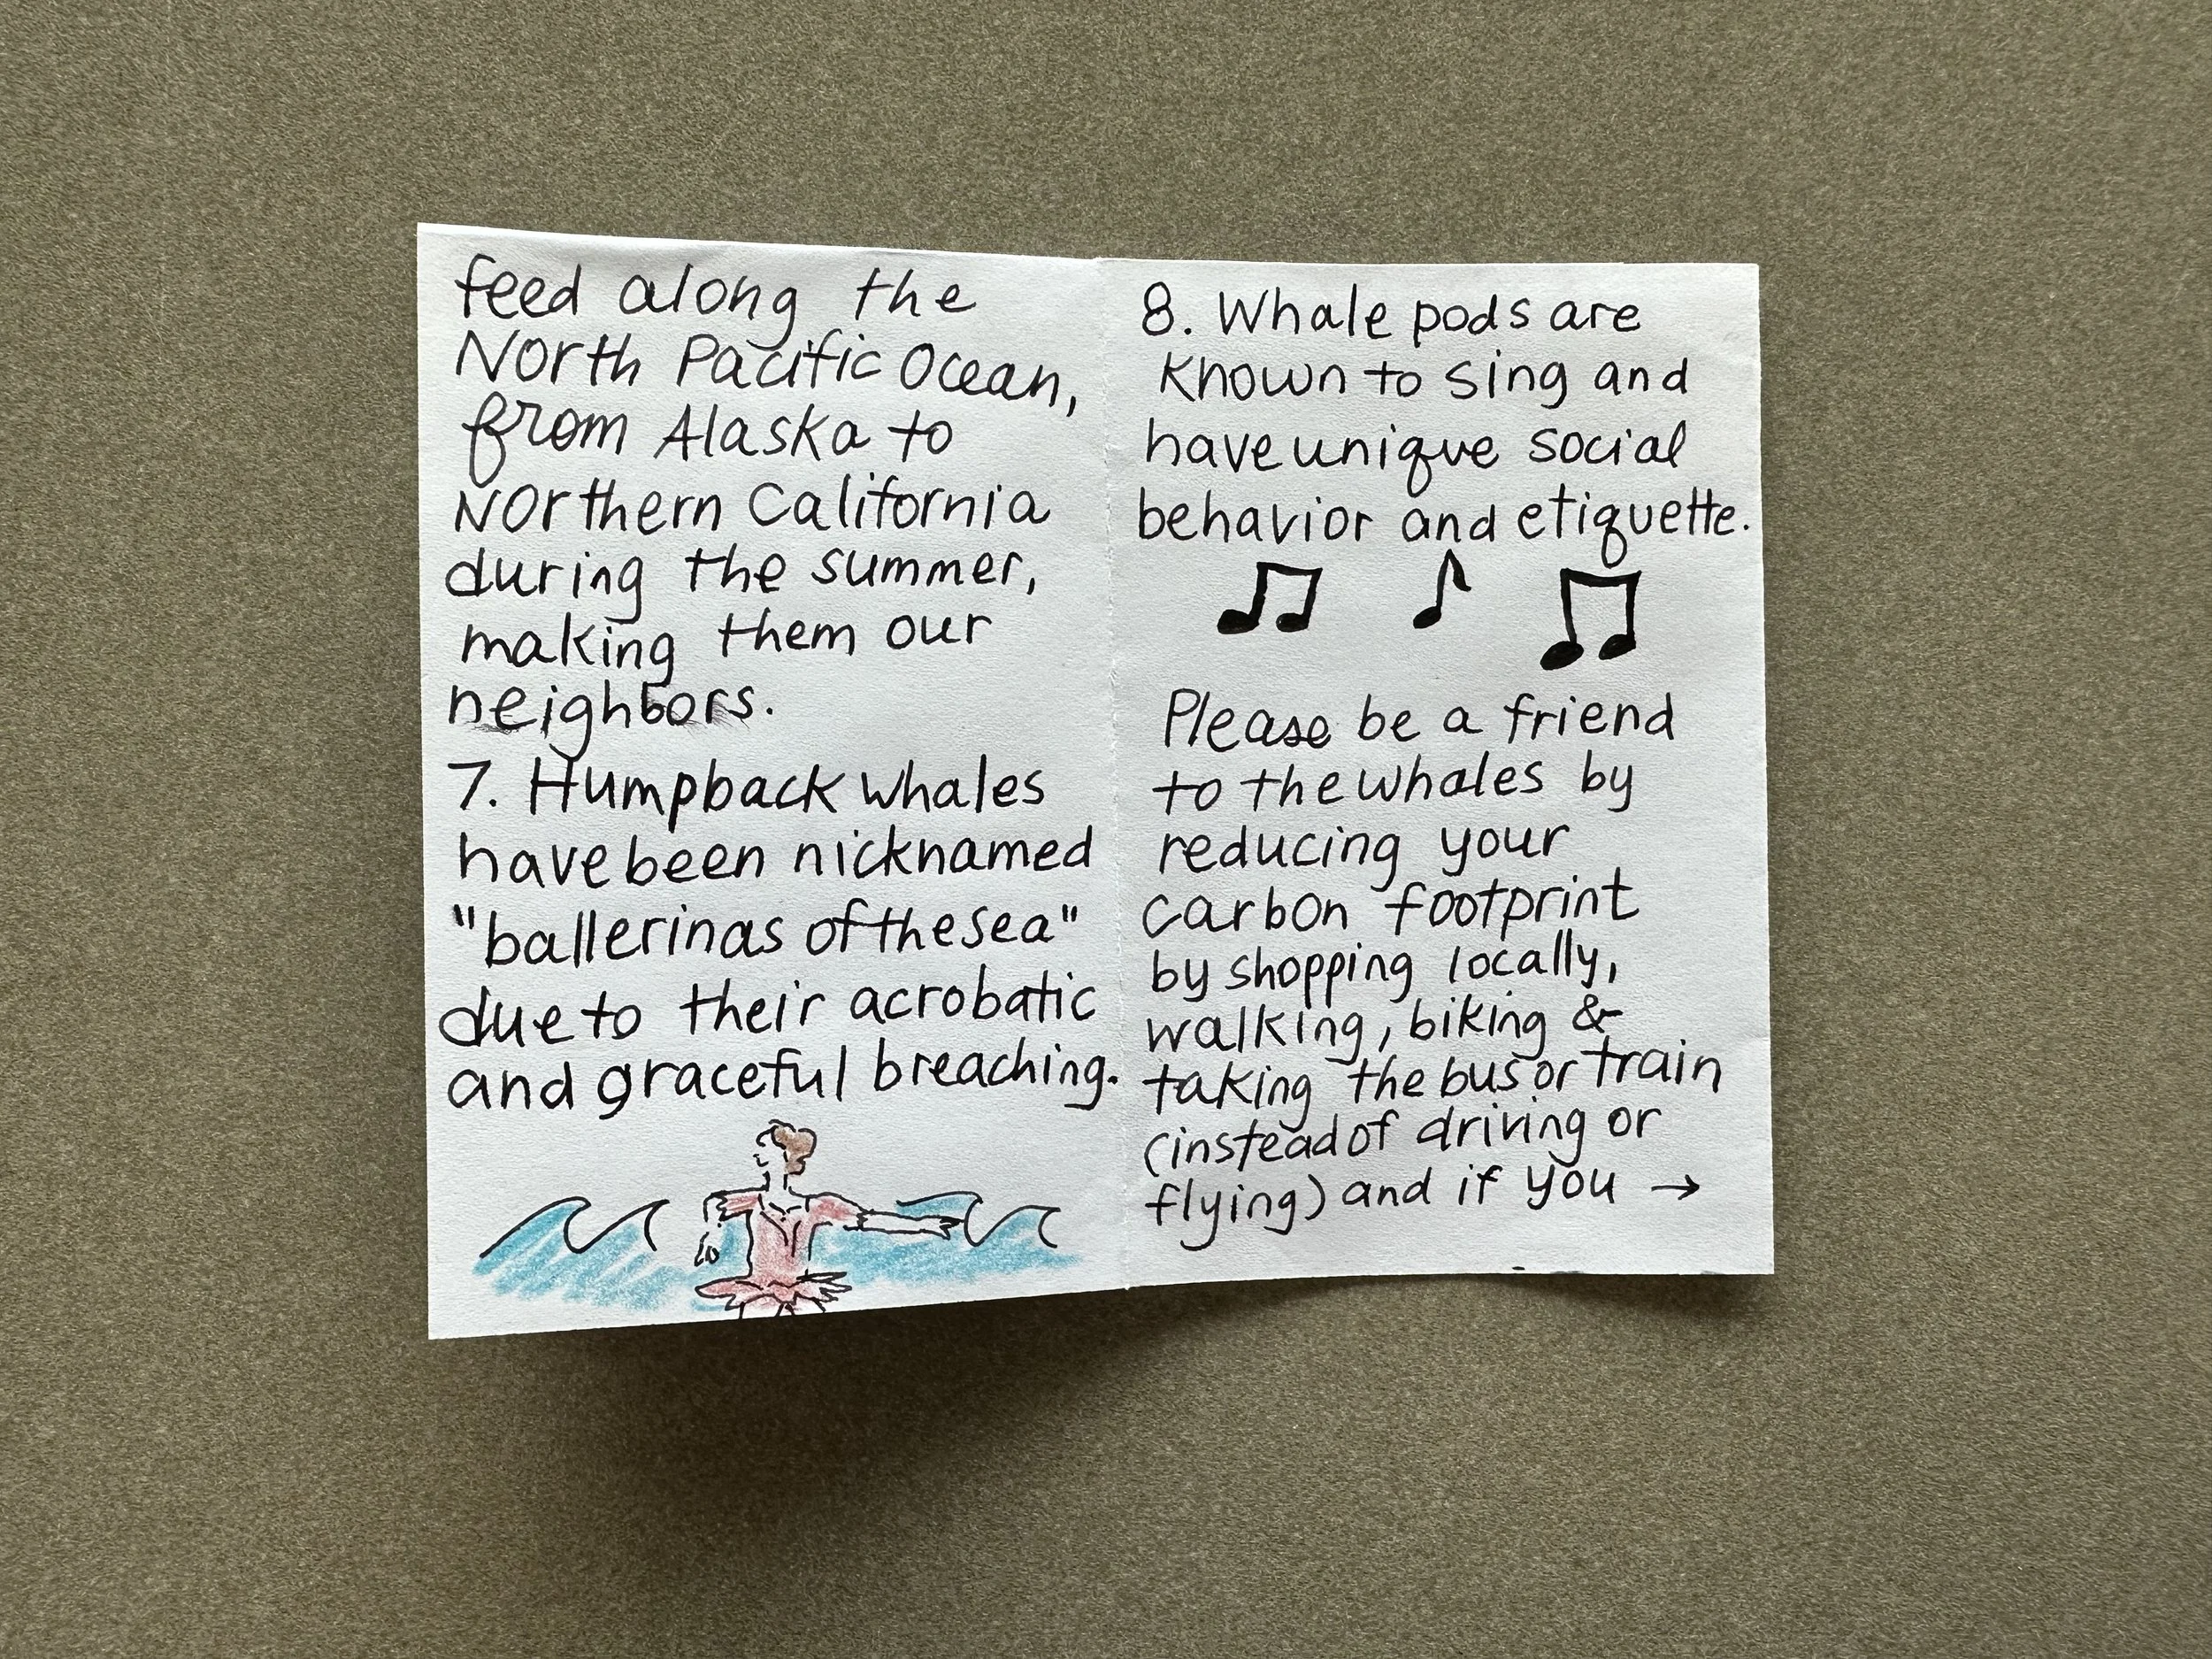 feed along the
North Pacific Ocean,
from Alaska to
Northern California
during the summer,
making them our
neighbors.
7. Humpback whales
have been nicknamed
"ballerinas of the sea"
due to their acrobatic
and graceful breaching.
8. Whale pods are
known to sing and
have unique social
behavior and etiquette.
Please be a friend
to the whales by
reducing your
carbon footprint
by shopping locally,
walking, biking &
taking the bus or train
(instead of driving or
flying) and if you →